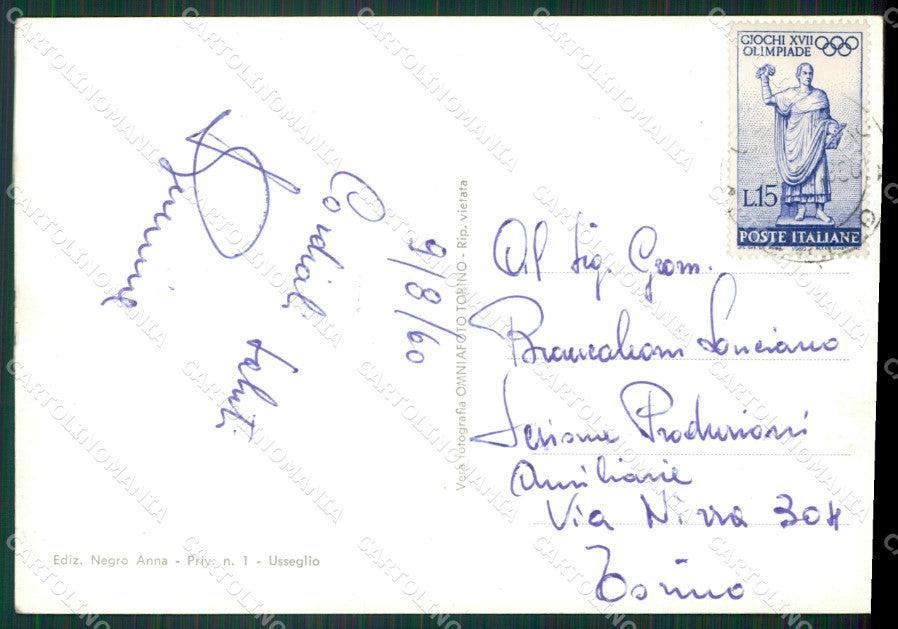 GIOCHI XVII
OLIMPIADE
L.15
POSTE ITALIANE
9/8/60
Cordiali saluti
Al Sig. Geom.
Brancaleoni Lanciano
Sezione Produzioni
Ausiliarie
Via Nizza 304
Torino
Vera fotografia OMNIAFOTO TORINO - Rip. vietata
Ediz. Negro Anna - Priv. n. 1 - Usseglio
CARTOLINOMANIA